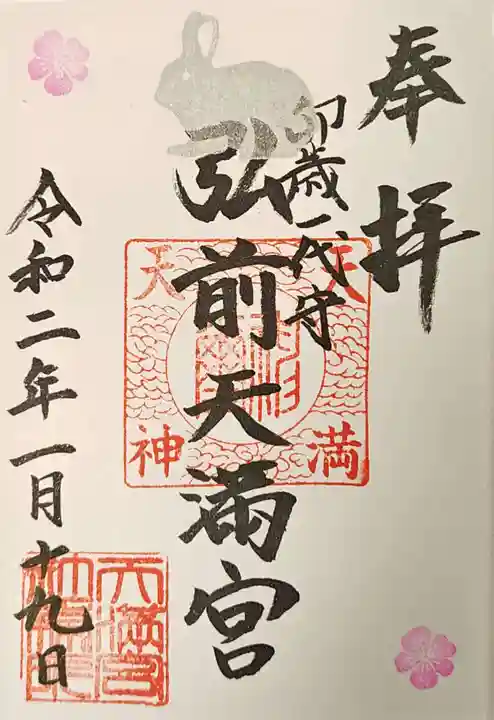 奉拝
卯歳一代守
弘前天満宮
天満
天神
令和二年一月十九日